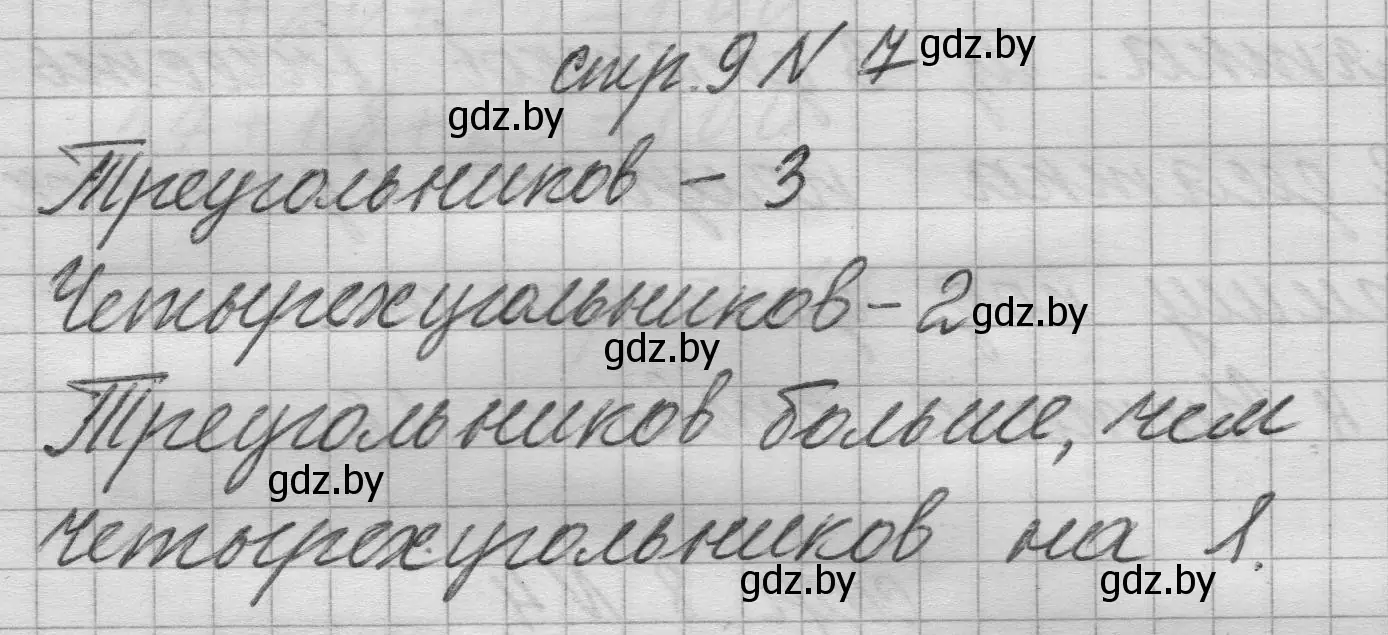 стр. 9 N 7 gdz.by
gdz.by
Треугольников - 3
Четырехугольников - 2 gdz.by
gdz.by
Треугольников больше, чем
gdz.by
четырехугольников на 1.
gdz.by gdz.by